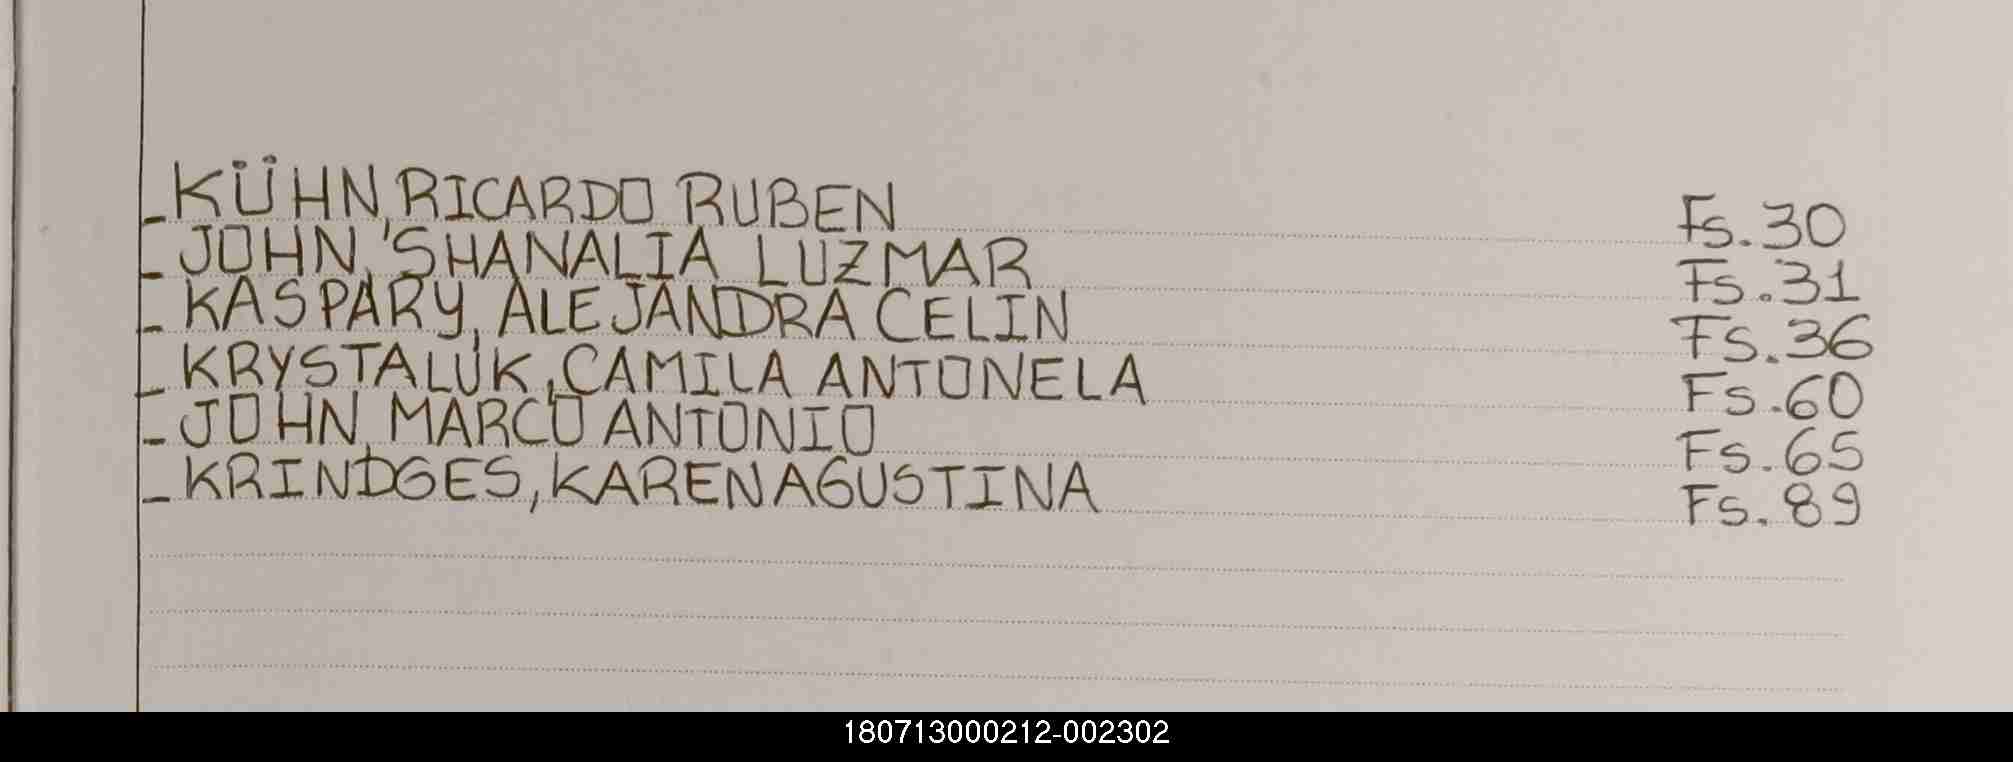 - KÜHN, RICARDO RUBEN Fs. 30
- JOHN, SHANALIA LUZMAR Fs. 31
- KASPARY, ALEJANDRA CELIN Fs. 36
- KRYSTALUK, CAMILA ANTONELA Fs. 60
- JOHN, MARCO ANTONIO Fs. 65
- KRINDGES, KAREN AGUSTINA Fs. 89
180713000212-002302